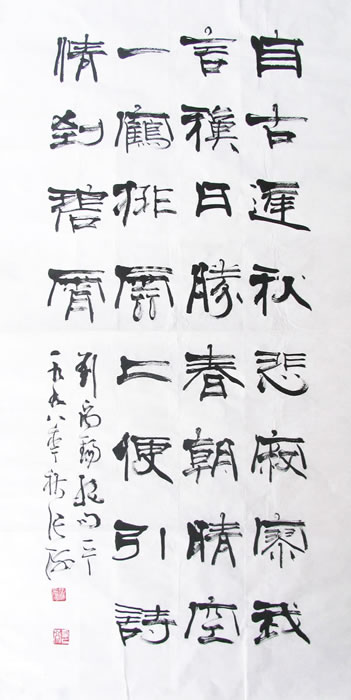 自古逢秋悲寂寥我
言秋日勝春朝晴空
一鶴排雲上便引詩
情到碧霄
劉禹錫
一九九八年秋